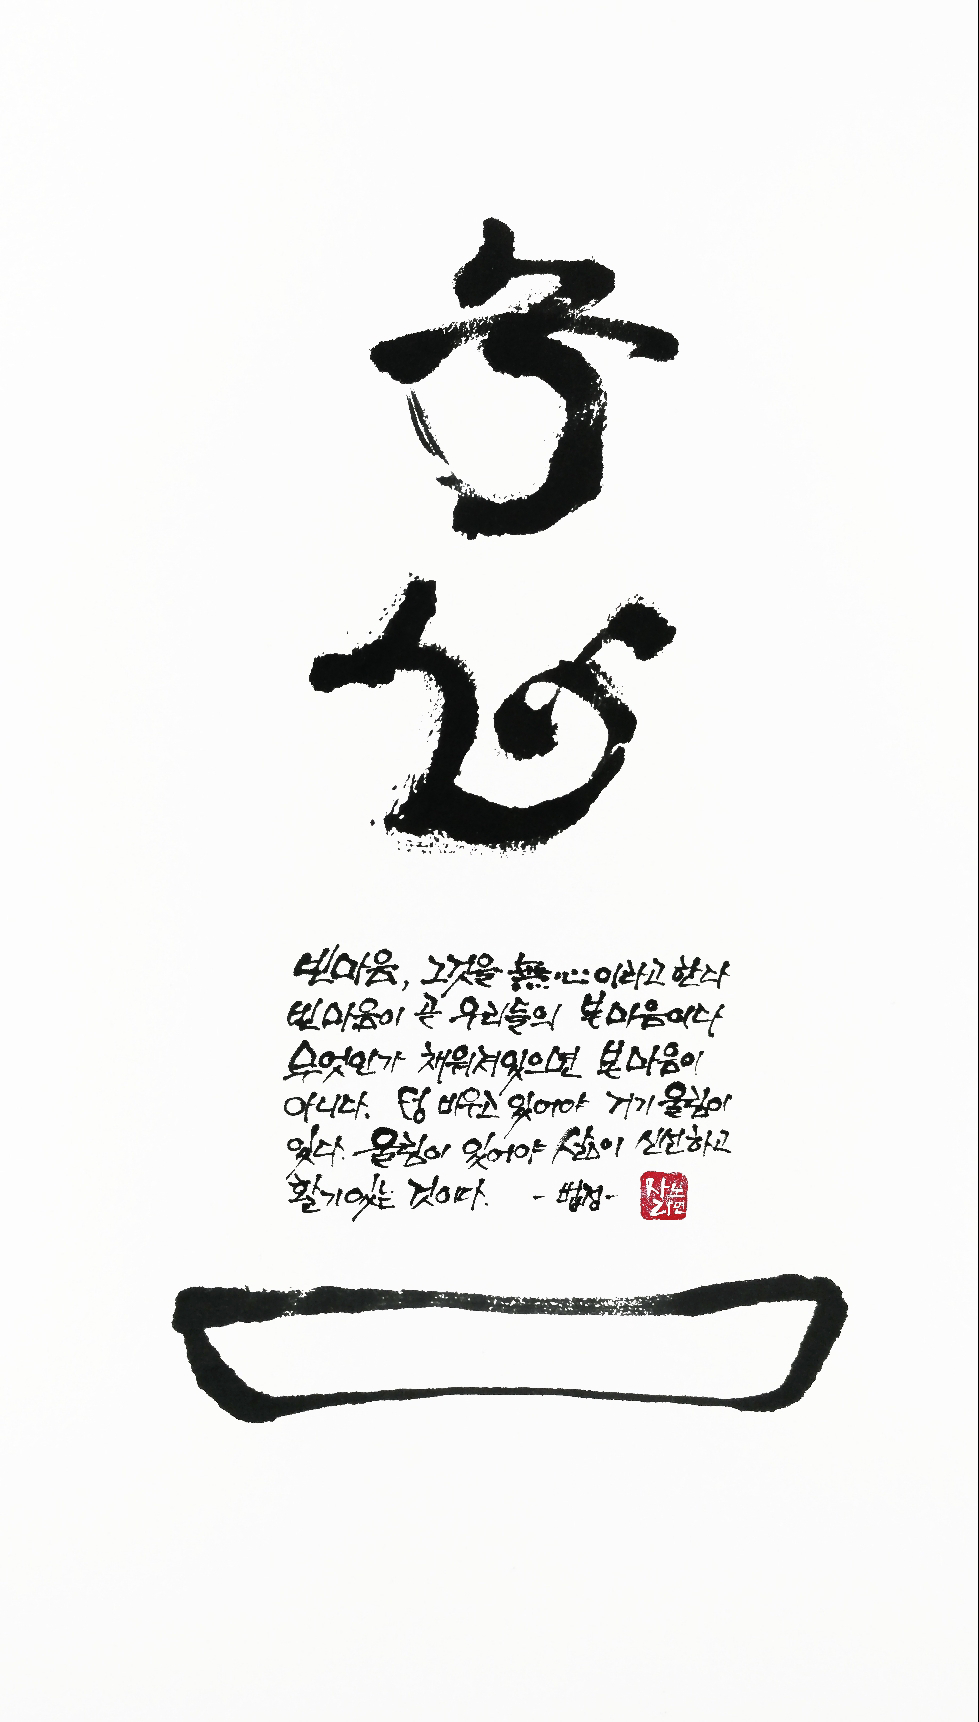 빈마음, 그것을 無心이라고 한다
빈마음이 곧 우리들의 본마음이다
무엇인가 채워져있으면 본마음이
아니다. 텅 비우고 있어야 거기 울림이
있다. 울림이 있어야 삶이 신선하고
활기있는 것이다. -법정-
사노
라면